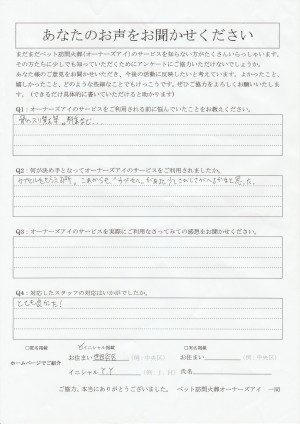 あなたのお声をお聞かせください
まだまだペット訪問火葬(オーナーズアイ)のサービスを知らない方がたくさんいらっしゃいます。
その方たちに少しでも知っていただくためにアンケートにご協力いただけないでしょうか。
あなた様のご意見をお聞かせいただき、今後の活動に反映したいと考えています。よかったこと、
嬉しかったこと、どのような些細なことでもけっこうです。ぜひご協力をよろしくお願いいたしま
す。(できるだけ具体的に書いていただけると助かります)
Q1:オーナーズアイのサービスをご利用される前に悩んでいたことをお教えください。
Q2:何が決め手となってオーナーズアイのサービスをご利用されましたか。
Q3:オーナーズアイのサービスを実際にご利用なさってみての感想をお聞かせください。
Q4:対応したスタッフの対応はいかがでしたか。
とても良かった!
□匿名掲載 ☑イニシャル掲載 □実名掲載
ホームページでご紹介
お住まい 世田谷区 (例:中央区) お住まい (例:中央区)
イニシャル Y.Y (例:I.H) 氏名
ご協力、本当にありがとうございました。 ペット訪問火葬オーナーズアイ 一同